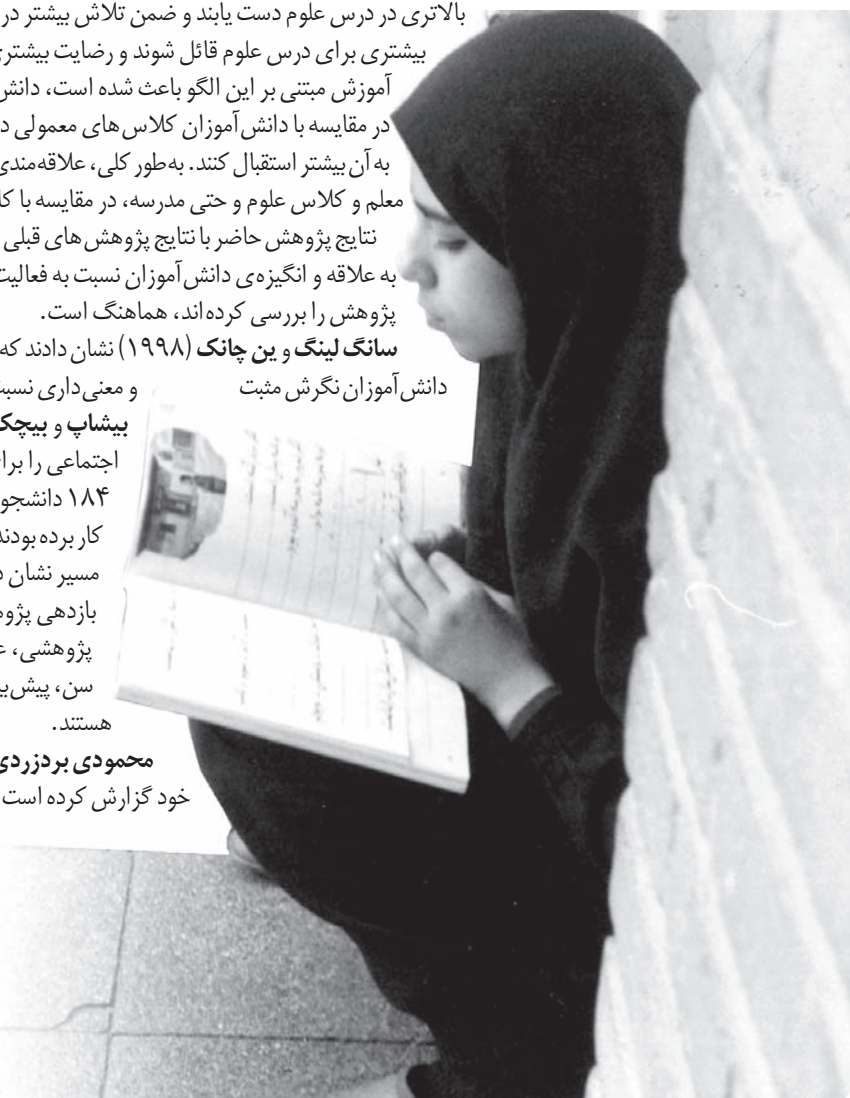 بالاتری در درس علوم دست یابند و ضمن تلاش بیشتر در
بیشتری برای درس علوم قائل شوند و رضایت بیشتری
آموزش مبتنی بر این الگو باعث شده است، دانش
در مقایسه با دانش‌آموزان کلاس‌های معمولی د
به آن بیشتر استقبال کنند. به‌طور کلی، علاقه‌مندی
معلم و کلاس علوم و حتی مدرسه، در مقایسه با کلا
نتایج پژوهش حاضر با نتایج پژوهش‌های قبلی
به علاقه و انگیزه‌ی دانش‌آموزان نسبت به فعالیت
پژوهش را بررسی کرده‌اند، هماهنگ است.
سانگ لینگ و ین چانک (۱۹۹۸) نشان دادند که
دانش‌آموزان نگرش مثبت و معنی‌داری نسبت
بیشاپ و بیچک
اجتماعی را برای
۱۸۴ دانشجو
کار برده بودند
مسیر نشان د
بازدهی پژوه
پژوهشی، ع
سن، پیش‌بی
هستند.
محمودی بردزردی
خود گزارش کرده است